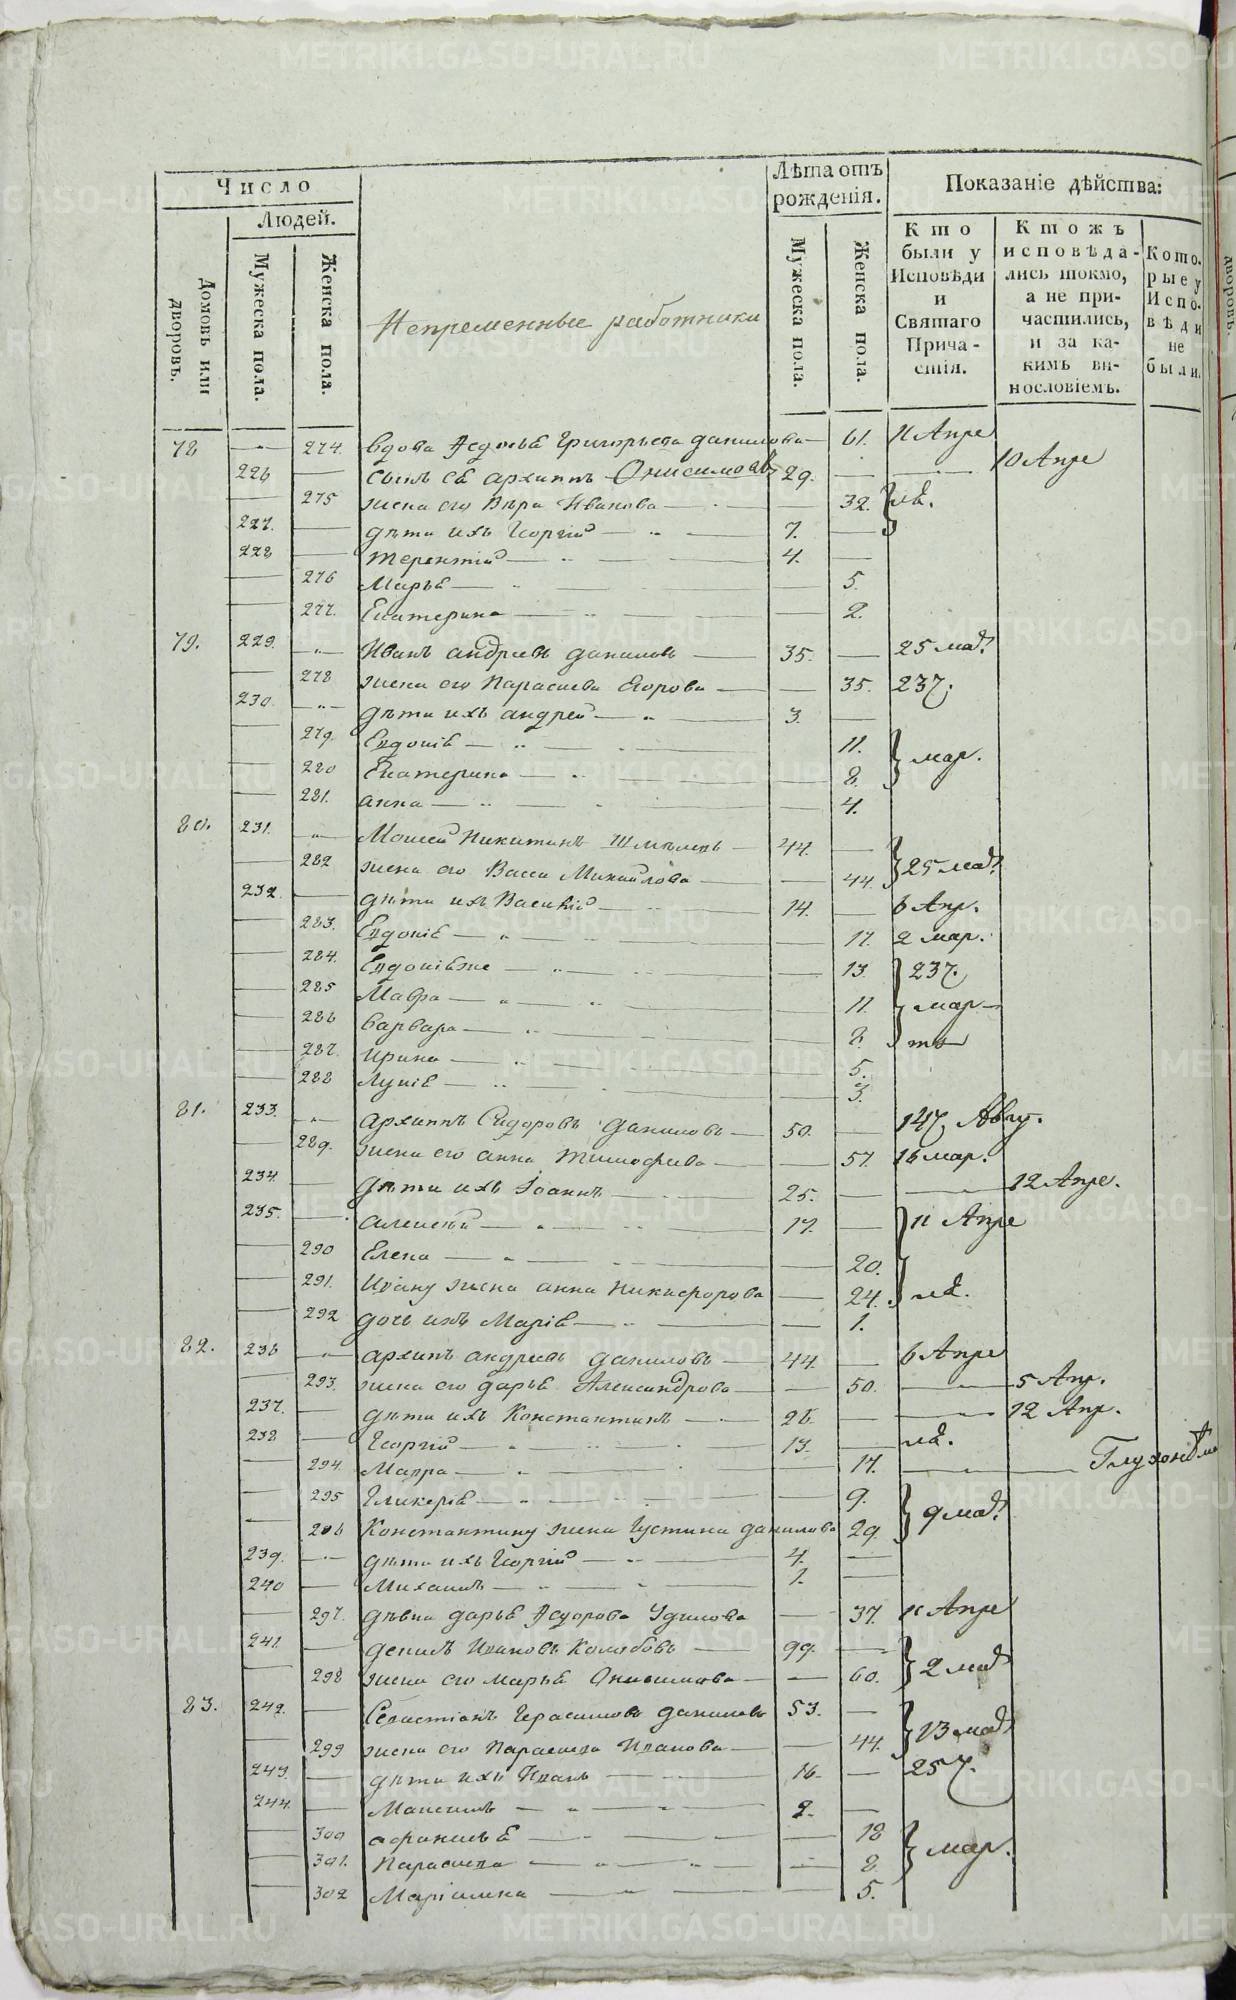 Число
Людей.
Домовъ или дворовъ.
Мужеска пола.
Женска пола.
Непременные работники
Лѣта отъ рожденія.
Мужеска пола.
Женска пола.
Показаніе дѣйства:
Кто были у Исповѣди и Святаго Причастія.
Ктожъ исповѣдались токмо, а не причастились, и за какимъ винословіемъ.
Которые у Исповѣди не были.
78 — 274. вдова Ѳедосья Григорьева данилова — 61. 11 Апре
226 — сынъ ея архиппъ Онисимовъ 29. — — 10 Апре
— 275 жена его Вѣра Иванова — 32.
227. — дѣти ихъ Георгій — 7. —
228 — терентій — 4. —
— 276 Марья — 5.
— 277. Екатерина — 2.
79. 229. Иванъ андреевъ даниловъ — 35. —
— 278 жена его Параскева Егорова — 35. 23
230. дѣти ихъ андрей — 3. —
— 279. Евдокія — 11.
мар.
— 280 Екатерина — 8.
— 281. анна — 4.
80. 231. Моисей Никитинъ 44. —
— 282 жена его Васса Михайлова — 44.
232. — дѣти ихъ Василій — 14. — 6 Апр.
— 283. Евдокія — 17. 2 мар.
— 284. Евдокія же — 13. 23
— 285 Мавра — 11. мар
— 286 варвара — 8.
— 287. ирина — 5.
— 288 Лукія — 3.
81. 233. архиппъ Сидоровъ даниловъ — 50. — 14 Авгу.
— 289. жена его анна тимофеева — 57. 16 мар.
234. — дѣти ихъ Іоаннъ 25. — — 12 Апре.
235. — алексѣй — 17. — 11 Апре
— 290 Елена — 20.
— 291. Ивану жена анна никифорова — 24.
— 292 дочь ихъ Марія — 1.
82. 236 архипъ андреевъ даниловъ — 44. — 6 Апре
— 293. жена его дарья Александрова — 50. — 5 Апр.
237. — дѣти ихъ Константинъ — 26. — — 12 Апр.
238 — Георгій — 13. —
— 294. Мавра — 17. — — Глухонѣма
— 295 Гликерія — 9.
9
— 296 Константину жена Густина данилова 29.
239. — дѣти ихъ Георгій — 4. —
240 — Михаилъ — 1. —
— 297. дѣвка дарья Ѳедорова — 37. 11 Апре
241. — денисъ Ивановъ 99. —
— 298 жена его марья Онисимова — 60. 2
83. 242. — Севастіанъ Герасимовъ даниловъ 53. —
— 299 жена его Параскева Иванова — 44. 13
243. — дѣти ихъ Иванъ — 16. — 25
244. — Максимъ — 2. —
— 300 афанасья — 12
мар.
— 301. Параскева — 8.
— 302 Маріамна — 5.